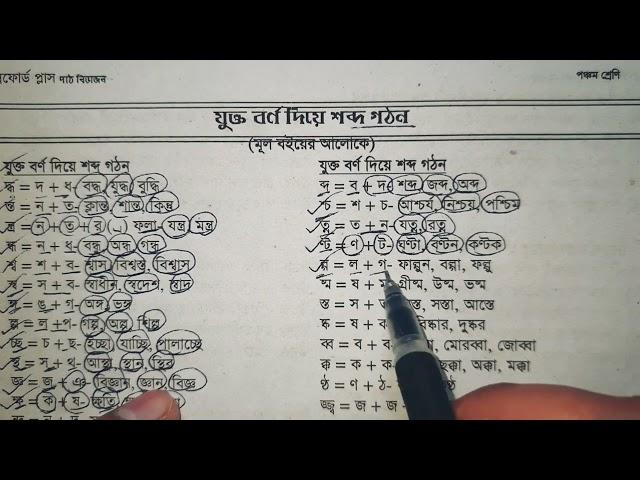 ফোর্ড প্লাস পাঠ বিভাজন
পঞ্চম শ্রেণি
যুক্ত বর্ণ দিয়ে শব্দ গঠন
(মূল বইয়ের আলোকে)
যুক্ত বর্ণ দিয়ে শব্দ গঠন
দ্ধ = দ + ধ- বদ্ধ, যুদ্ধ, বুদ্ধি
ন্ত = ন + ত- ক্লান্ত, শান্ত, কিন্তু
ন্ত্র = ন + ত + র (্র) ফলা- যন্ত্র, মন্ত্র
ন্ধ = ন + ধ- বন্ধ, অন্ধ, গন্ধ
শ্ব = শ + ব- শ্বাস, বিশ্বস্ত, বিশ্বাস
স্ব = স + ব- স্বাধীন, স্বদেশ, স্বাদ
ঙ্গ = ঙ + গ- অঙ্গ, ভঙ্গ
ল্প = ল + প- গল্প, অল্প, শিল্প
চ্ছ = চ + ছ- ইচ্ছা, যাচ্ছি, পালাচ্ছে
স্থ = স + থ- আস্থা, স্থান, স্থির
জ্ঞ = জ + ঞ- বিজ্ঞান, জ্ঞান, বিজ্ঞ
ক্ষ = ক + ষ- ক্ষতি
যুক্ত বর্ণ দিয়ে শব্দ গঠন
ব্দ = ব + দ- শব্দ, জব্দ, অব্দ
শ্চ = শ + চ- আশ্চর্য, নিশ্চয়, পশ্চিম
ত্ন = ত + ন- যত্ন, রত্ন
ণ্ট = ণ + ট- ঘণ্টা, বণ্টন, কণ্টক
ল্গ = ল + গ- ফাল্গুন, বল্গা, ফল্গু
ষ্ম = ষ + ম গ্রীষ্ম, উষ্ম, ভষ্ম
স্ত = স + ত স্ত, সস্তা, আস্তে
ষ্ক = ষ + ক বিষ্কার, দুষ্কর
ব্ব = ব + ব মোরব্বা, জোব্বা
ক্ক = ক + ক- ছক্কা, অক্কা, মক্কা
ণ্ঠ = ণ + ঠ- কণ্ঠ
জ্জ্ব = জ + জ